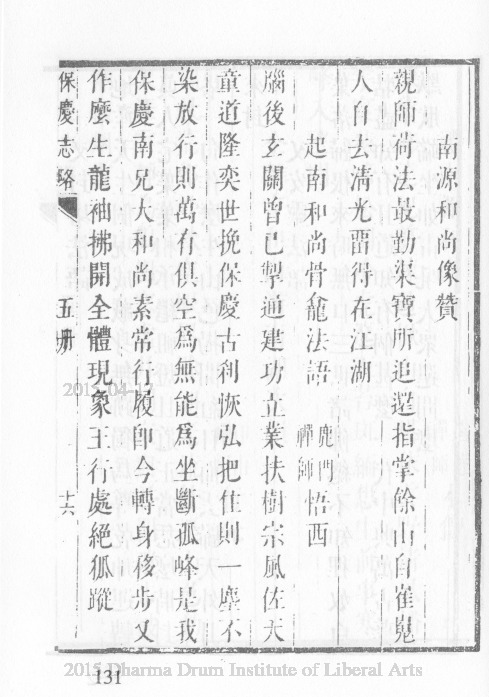 南源和尚像贊
親師荷法最勤渠寶所追遊指掌餘山自崔嵬
人自去清光畱得在江湖
起南和尚骨龕法語 鹿門禪師悟西
腦後玄關曾已掣通建功立業扶樹宗風佐天
童道隆奕世挽保慶古刹恢弘把住則一塵不
染放行則萬有俱空爲無能爲坐斷孤峰是我
保慶南兄大和尚素常行履卽今轉身移步又
作麼生龍袖拂開全體現象王行處絕狐蹤
保慶志略 五册 十六
2015-04-
131
2015 Dharma Drum Institute of Liberal Arts